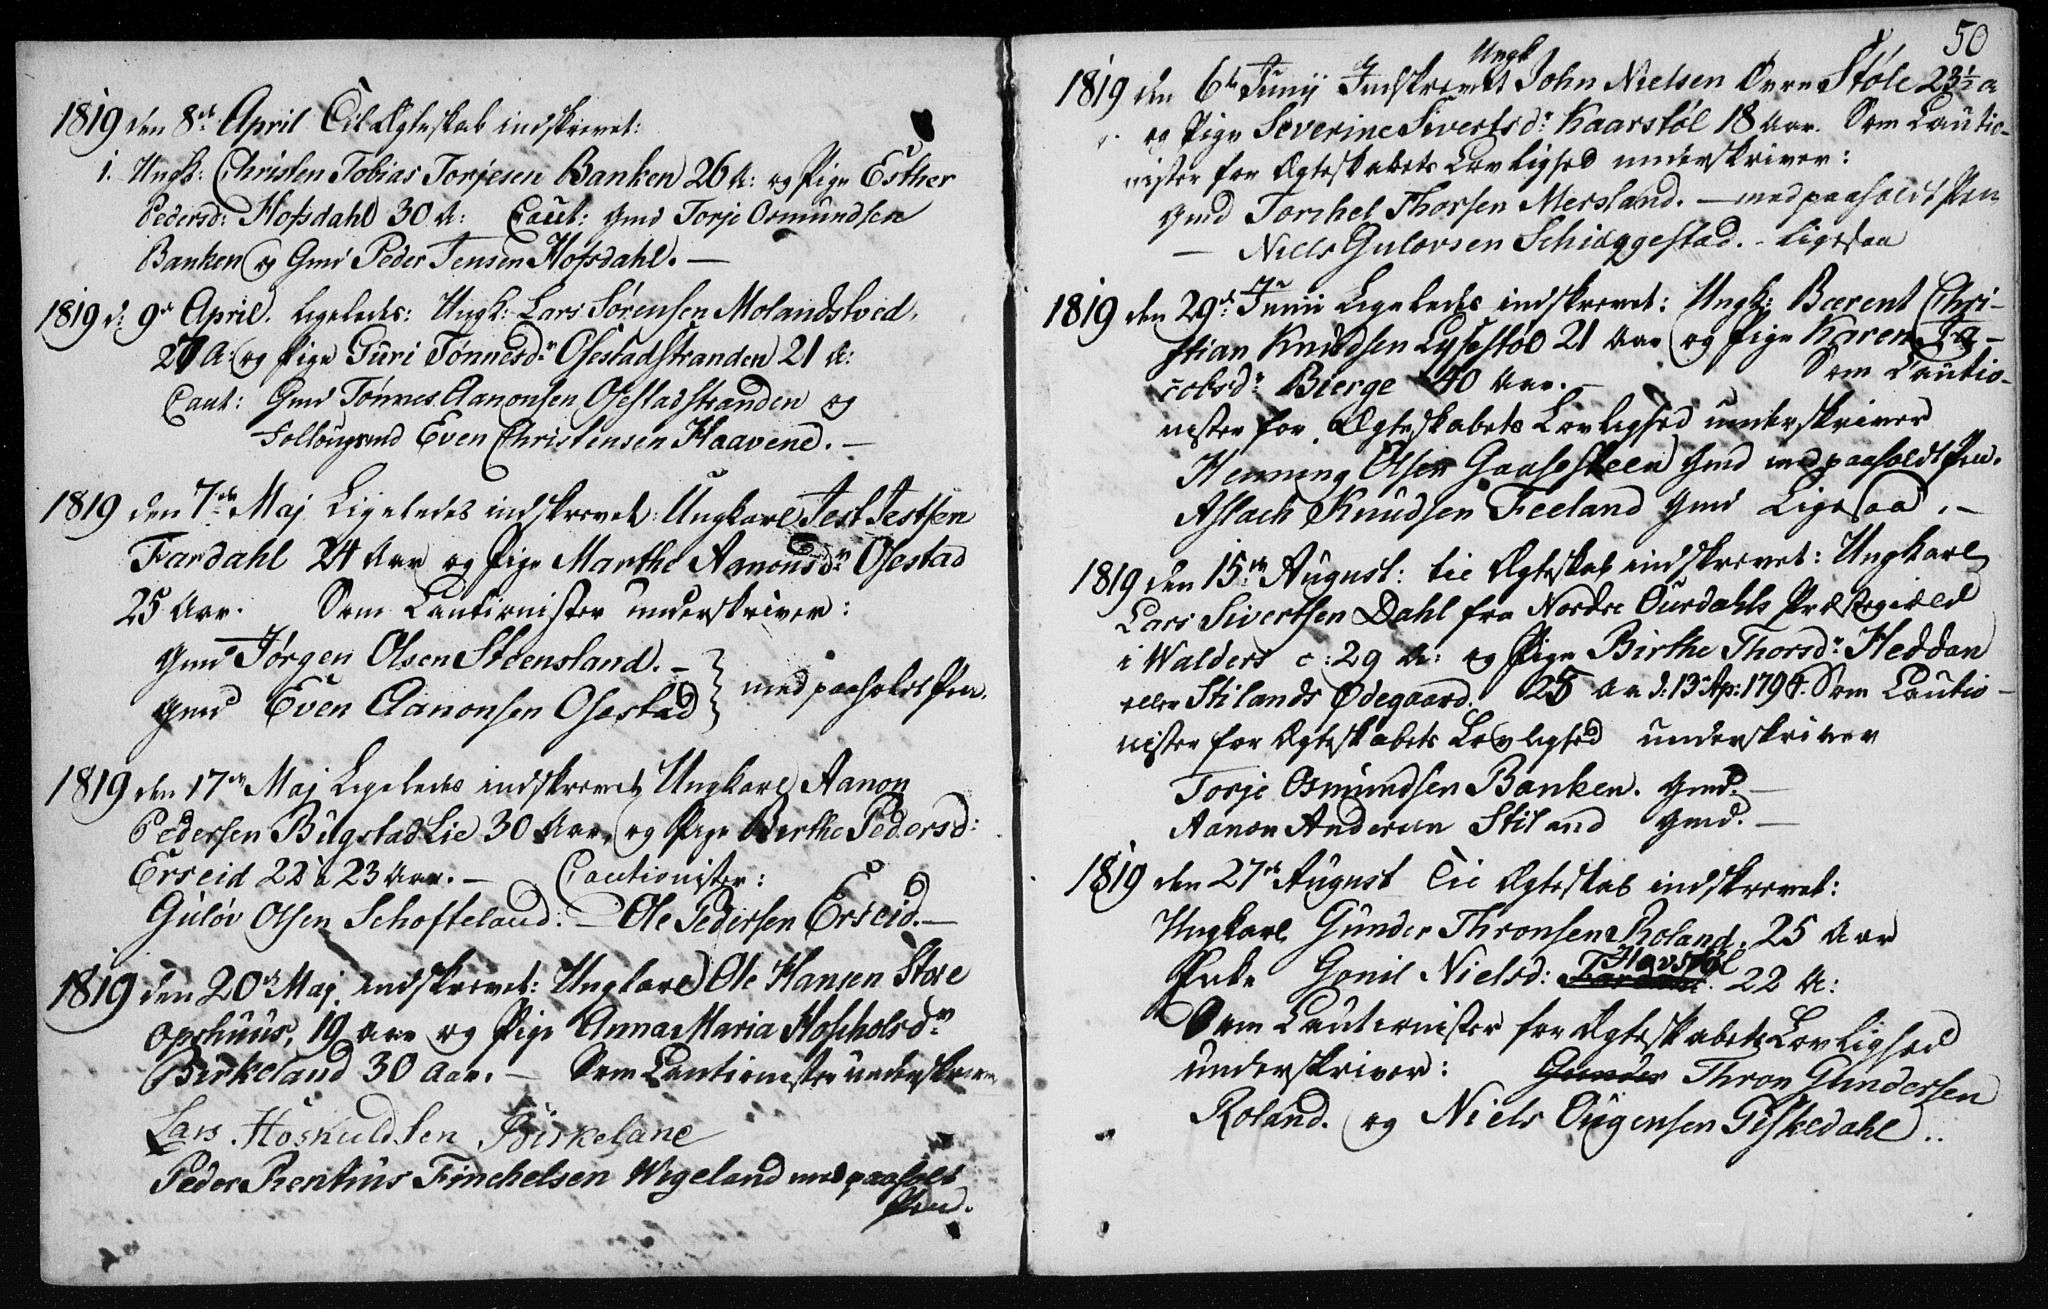 1819 den 8de April Til Ægteskab indskrevet:
1. Ungk: Christen Tobias Torjesen Banken 26 A: og Pige Esther
Pedersd: Hofsdahl 30 A: Caut: Gmd Torje Osmundsen
Banken og Gmd Peder Jensen Hofsdahl. —
1819 d: 9de April. Ligeledes: Ungk: Lars Sørensen Molandsved.
27 A: og Pige Guri Tønnesdr Osestadstranden 21 A:
Caut: Gmd Tønnes Aanonsen Osestadstranden og
Follougmd Even Christensen Haavene. —
1819 den 7de Maj Ligeledes indskrevet: Ungkarl Jest Jestsen
Fardahl 24 Aar og Pige Marthe Aanonsdr Osestad
25 Aar. Som Cautionister underskriver:
Gmd Jørgen Olsen Steensland. —
Gmd Even Aanonsen Osestad } med paaholdt Pen.
1819 den 17de Maj Ligeledes indskrevet Ungkarl Aanon
Pedersen Bugstad Lie 30 Aar, og Pige Berthe Pedersd:
Erseid 22 a 23 Aar. — Cautionister:
Guløv Olsen Schofteland: — Ole Pedersen Erseid. —
1819 den 20de Maj indskrevet: Ungkarl Ole Hansen Store
Opshuus, 19 Aar og Pige Anna Maria Hoscholsdr
Birkeland 30 Aar. — Som Cautionister underskriver
Lars Hoskuldsen Birkeland
Peder Pentius Finchelsen Wegeland med paaholdt
Pen.
50
Ungk
1819 den 6te Junij Indskrevet John Nielsen Øvre Støle 23½ a
og Pige Severine Sivertsdr Kaarstøl 18 Aar. Som Cautio-
nister for Ægteskabets Lovlighed underskriver:
Gmd Torchel Thorsen Mersland. — med paaholdt Pen
— Niels Gulovsen Schieggestad. - Ligesaa
1819 den 29de Junii Ligeledes indskrevet: Ungk: Bærent Chri-
stian Knudsen Lysestøl 21 Aar og Pige Karen Ja-
cobsdr Bierge 40 Aar. — Som Cautio-
nister for Ægteskabets Lovlighed underskriver
Henning Olsen Gaaseskeen Gmd med paaholdt Pen.
Aslach Knudsen Feeland Gmd Ligesaa. —
1819 den 15de August: til Ægteskab indskrevet: Ungkarl
Lars Sivertsen Dahl fra Nordre Ourdahls Præstegield
i Walders c: 29 A: og Pige Birthe Thorsdr Heddan
eller Stilands Ødegaard. 25 Aar d: 13 Ap: 1794. Som Cautio-
nister for Ægteskabets Lovlighed underskriver
Torje Osmundsen Banken. Gmd. —
Aanon Andersen Stiland Gmd. —
1819 den 27de August Til Ægteskab indskrevet:
Ungkarl Gunder Thronsen Roland. 25 Aar
Enke Gonil Nielsd: Havstøl 22 A:
Som Cautionister for Ægteskabets Lovlighed
underskriver: Gunder Thron Gundersen
Roland. og Niels Ougensen Fiskedahl..